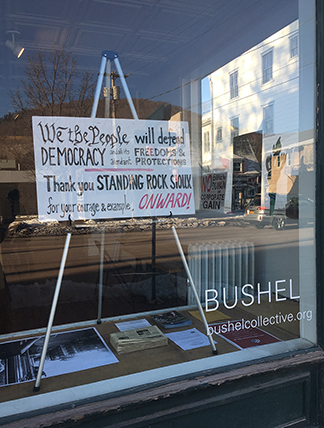 We the People will defend
DEMOCRACY and all its attendant FREEDOMS &
PROTECTIONS
Thank you STANDING ROCK SIOUX
for your courage & example. ONWARD!
NO
CORPORATE
GAIN
BUSHEL
bushelcollective.org